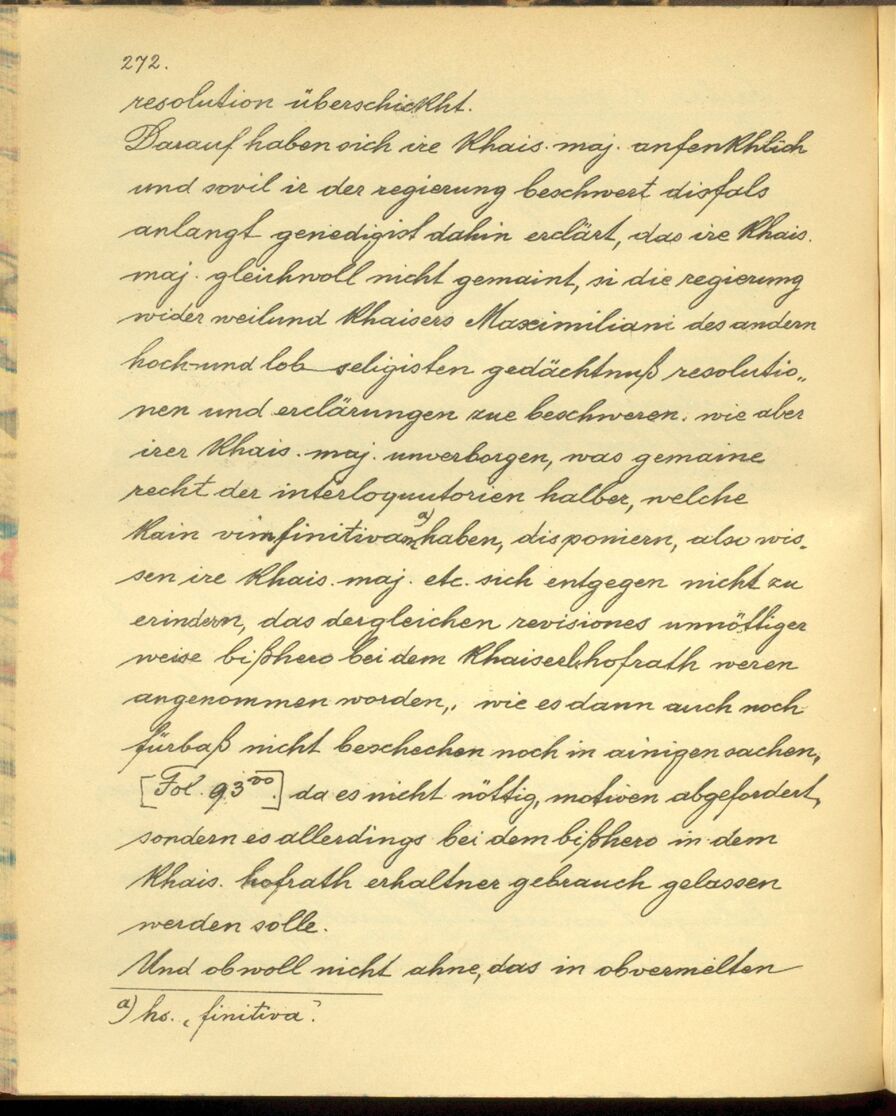 272.
resolution überschickht.
Darauf haben sich ire khais. maj. anfenkhlich
und sovil ir der regierung beschwert disfals
anlangt genedigist dahin erclärt, das ire khais.
maj. gleichwoll nicht gemaint, si die regierung
wider weilund khaisers Maximiliani des andern
hoch- und lob seligisten gedächtnuß resolutio„
nen und erclärungen zue beschweren. wie aber
irer khais. maj. unverborgen, was gemaine
recht der interloquutorien halber, welche
kain vim finitivam a) haben, disponiern, also wis„
sen ire khais. maj. etc. sich entgegen nicht zu
erindern, das dergleichen revisiones unnöttiger
weise bißhero bei dem khaiserl. hofrath weren
angenommen worden,. wie es dann auch noch
fürbaß nicht beschechen noch in ainigen sachen,
[Fol. 93 vo.] da es nicht nöttig, motiven abgefordert,
sondern es allerdings bei dem bißhero in dem
khais. hofrath erhaltner gebrauch gelassen
werden solle.
Und obwoll nicht ahne, das in obvermelten
a) hs. „finitiva“.